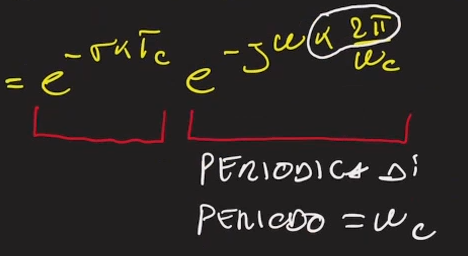 = e^{-σkT_c} e^{-jω k \frac{2π}{ω_c}}
PERIODICA DI
PERIODO = ω_c